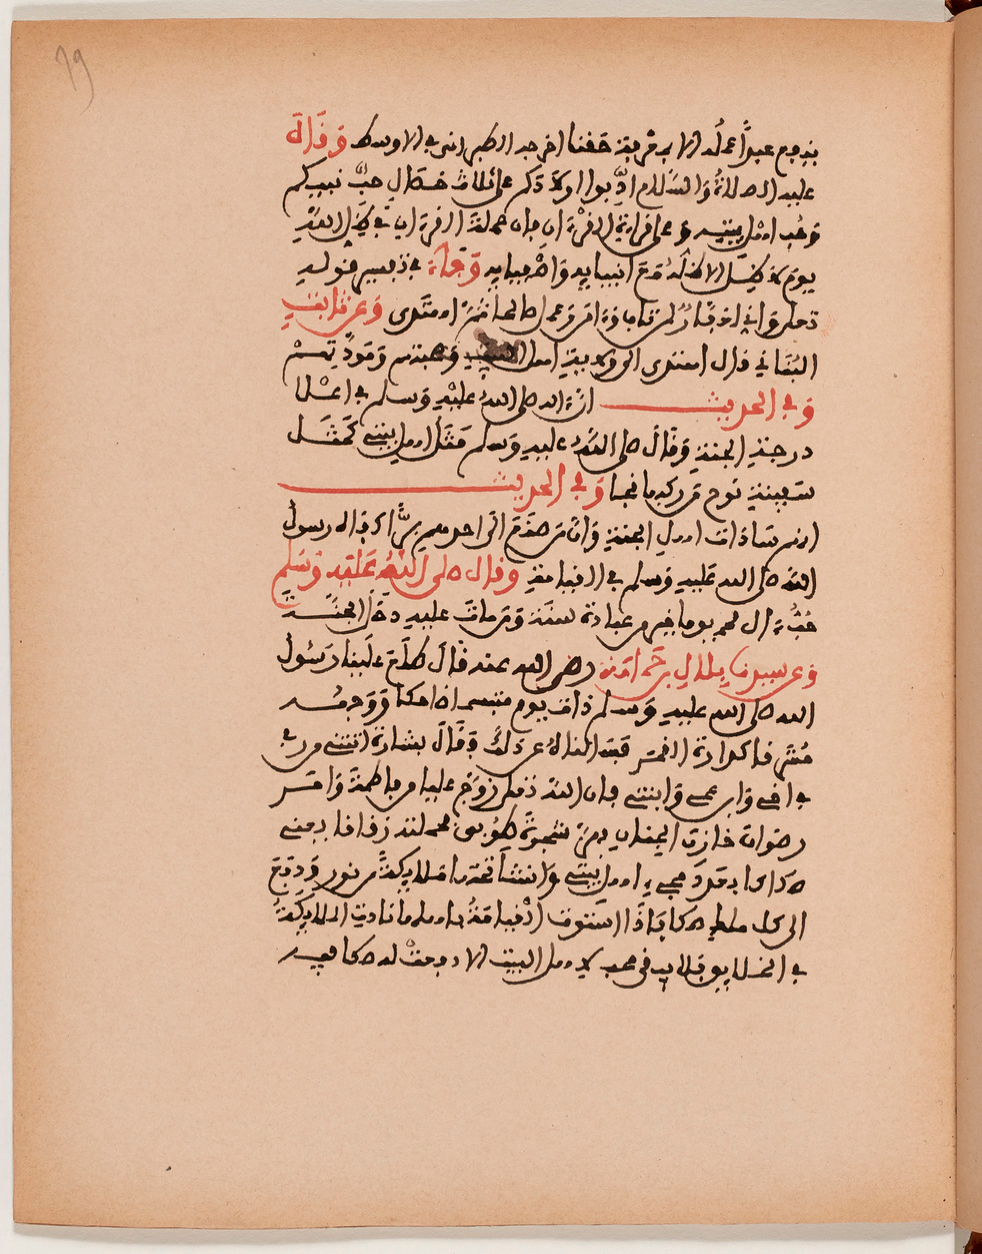 79
ينفع عبدا عمله الا بمعرفة حقنا اخرجه الطبراني في الاوسط وقال
عليه الصلاة والسلام ادبوا اولادكم على ثلاث خصال حب نبيكم
وحب اهل بيته وعلى قراءة القرءان فان حملة القرءان في ظل الله
يوم لا ظل الا ظله مع انبيايه واصفيايه وجاء في تفسير قوله
تعلى واني لغفار لمن تاب وءامن وعمل صالحا ثم اهتدى وعن ثابت
البناني قال اهتدى الى ولاية اهل البيت ومحبتهم ومودتهم
وفي الحديث انه صلى الله عليه وسلم في اعلا
درجة الجنة وقال صلى الله عليه وسلم مثل اهل بيتي كمثل
سفينة نوح من ركبها نجا وفي الحديث
انهم سادات اهل الجنة وان من صنع الى احدهم برا كافاه رسول
الله صلى الله عليه وسلم في القيامة وقال صلى الله عليه وسلم
حب ءال محمد يوما خير من عبادة سنة ومن مات عليه دخل الجنة
وعن سيدنا بلال بن حمامة رضي الله عنه قال طلع علينا رسول
الله صلى الله عليه وسلم ذات يوم متبسما ضاحكا ووجهه
مشرق كدارة القمر فسالناه عن ذلك وقال بشارة اتتني من ربي
في اخي وابن عمي وابنتي فان الله تعلى زوج عليا من فاطمة وامر
رضوان خازن الجنان فهز شجرة طوبى فحملت رقاقا يعني
صكاكا بعدد محبي اهل بيتي وانشا تحتها ملايكة من نور ودفع
الى كل ملك صكا فاذا استوت القيامة باهلها نادت الملايكة
في الخلايق فلا يبقى محب لاهل البيت الا دفعت له صكا فيه